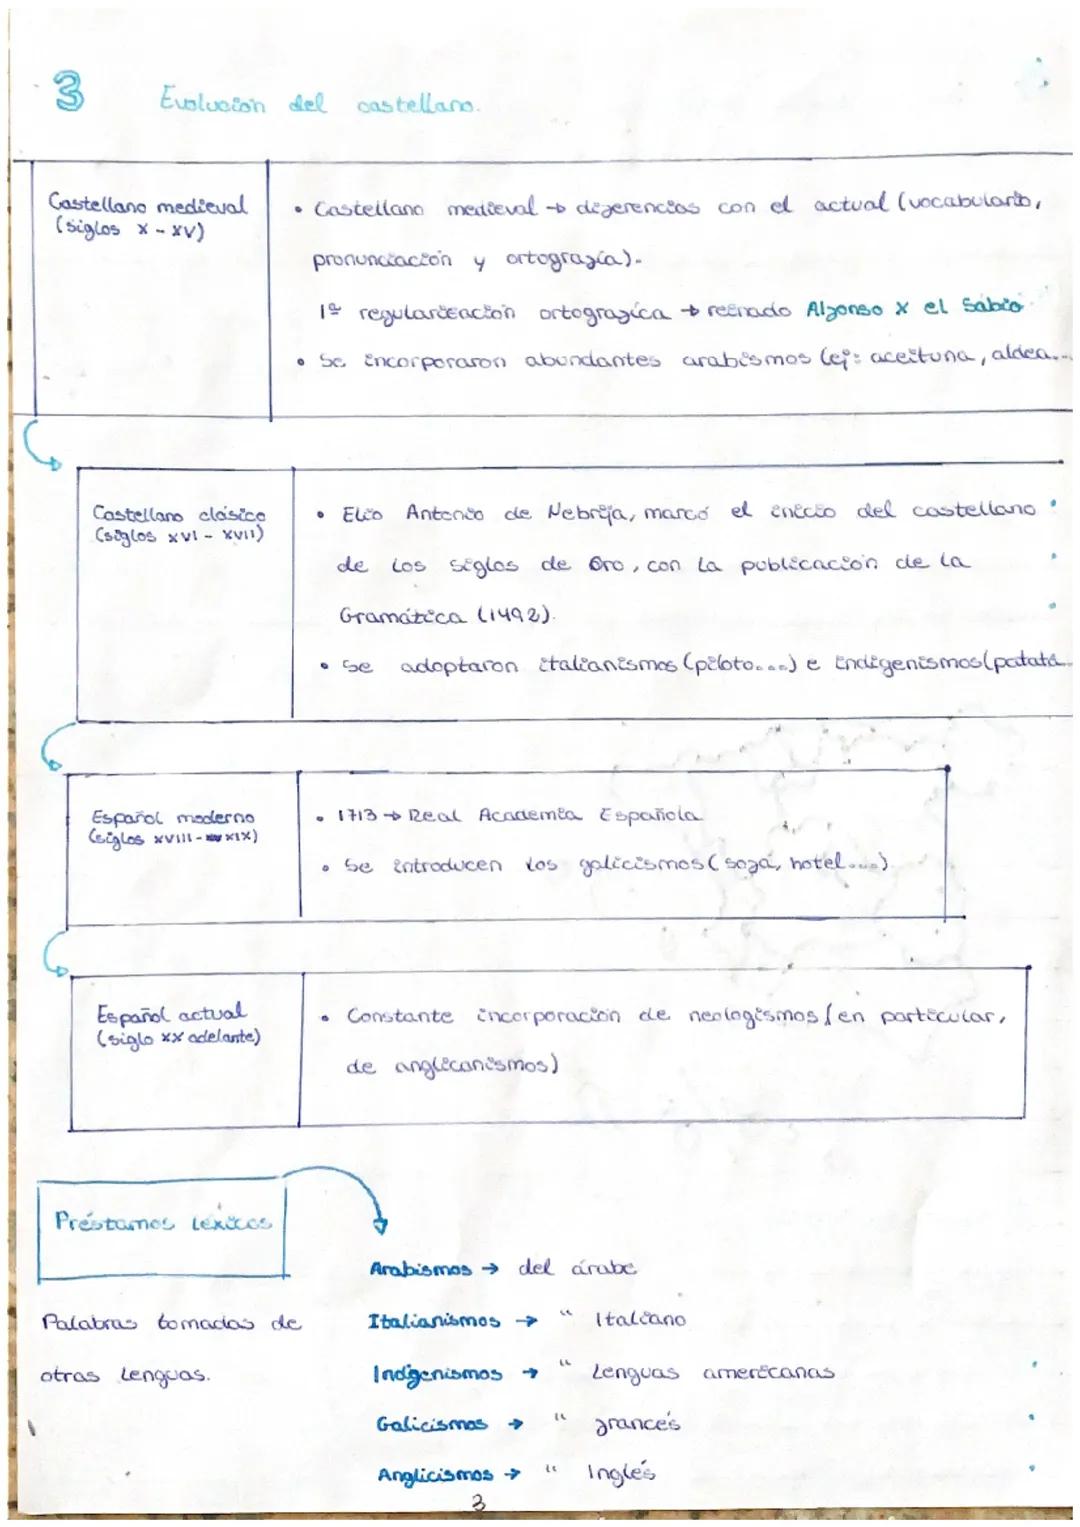 3 Evolución del castellano.
Castellano medieval
(siglos X - XV)
• Castellano medieval → diferencias con el actual (vocabulario,
pronunciación y ortografía).
1ª regularización ortográfica → reinado Alfonso X el Sabio
• Se incorporaron abundantes arabismos (ej: aceituna, aldea...
Castellano clásico
(siglos XVI - XVII)
• Elio Antonio de Nebrija, marcó el inicio del castellano
de los siglos de Oro, con la publicación de la
Gramática (1492).
• Se adoptaron italianismos (piloto....) e indigenismos (patata...
Español moderno
(siglos XVIII - XIX)
• 1713 → Real Academia Española
• Se introducen los galicismos (sofá, hotel....).
Español actual
(siglo XX adelante)
• Constante incorporación de neologismos (en particular,
de anglicanismos)
Préstamos léxicos
Palabras tomadas de
otras lenguas.
Arabismos → del árabe
Italianismos → " Italiano
Indigenismos → " Lenguas americanas
Galicismos → " francés
Anglicismos → " Inglés
3